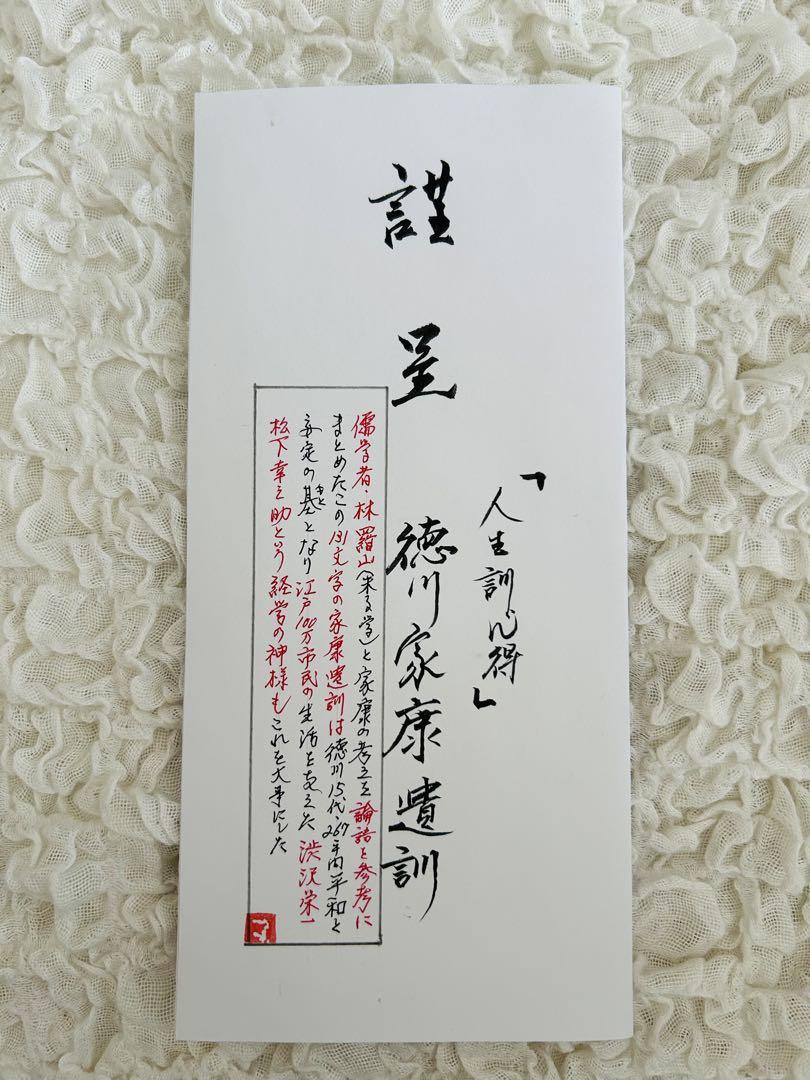 謹呈
「人生訓心得」
徳川家康遺訓
儒学者・林羅山(朱子学)と家康の考えを論語を参考に
まとめたこの131文字の家康遺訓は徳川15代・267年間平和と
安定の基もととなり江戸100万市民の生活を支えた 渋沢栄一
松下幸之助という経営の神様もこれを大事にした